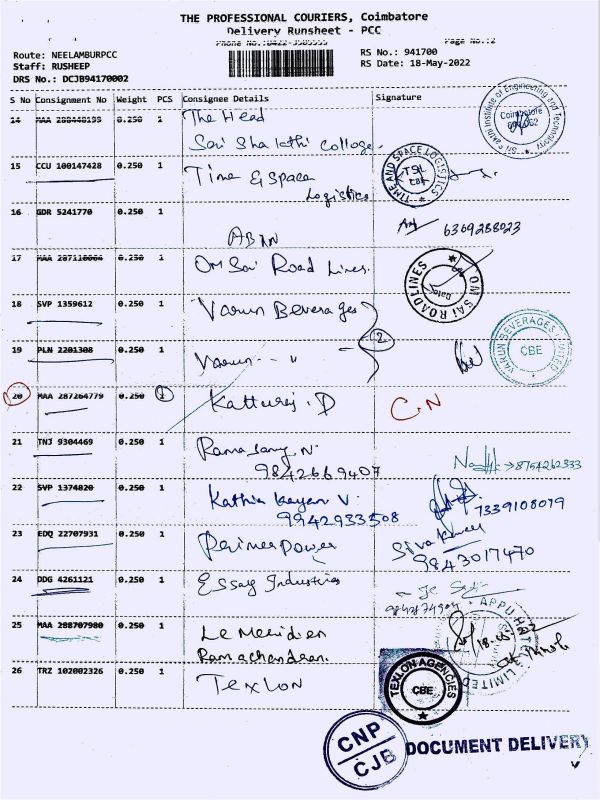 THE PROFESSIONAL COURIERS, Coimbatore
Delivery Runsheet - PCC
Phone No.:0422-3505555 Page No.:2
Route: NEELAMBURPCC RS No.: 941700
Staff: RUSHEEP RS Date: 18-May-2022
DRS No.: DCJB94170002
S No Consignment No Weight PCS Consignee Details Signature
14 MAA 288448199 0.250 1 The Head
Sai Shakthi College.
Sri Sakthi Institute of Engineering and Technology Coimbatore 641 062
15 CCU 100147428 0.250 1 Time & Space
Logistics
TIME AND SPACE LOGISTICS TSL CBE
16 GDR 5241770 0.250 1 ABAN 6369288023
17 MAA 287110064 0.250 1 Om Sai Road Lines.
OM SAI ROADLINES Date:
18 SVP 1359612 0.250 1 Varun Beverages
2
19 PLN 2201308 0.250 1 Varun -- "
VARUN BEVERAGES LIMITED CBE
20 MAA 287264779 0.250 1 Katturaj . D C.N
21 TNJ 9304469 0.250 1 Ramasamy N.
9842669407 8754262333
22 SVP 1374820 0.250 1 Kathikeyan V.
9942933508 7339108079
23 EDQ 22707931 0.250 1 Perimerpower Sivakumar
9843017470
24 DDG 4261121 0.250 1 Essay Industries
25 MAA 288707980 0.250 1 Le Meridien
Ramachandran.
APPU LIMITED
26 TRZ 102002326 0.250 1 Texlon
TEXLON AGENCIES CBE
CNP
CJB
DOCUMENT DELIVERY